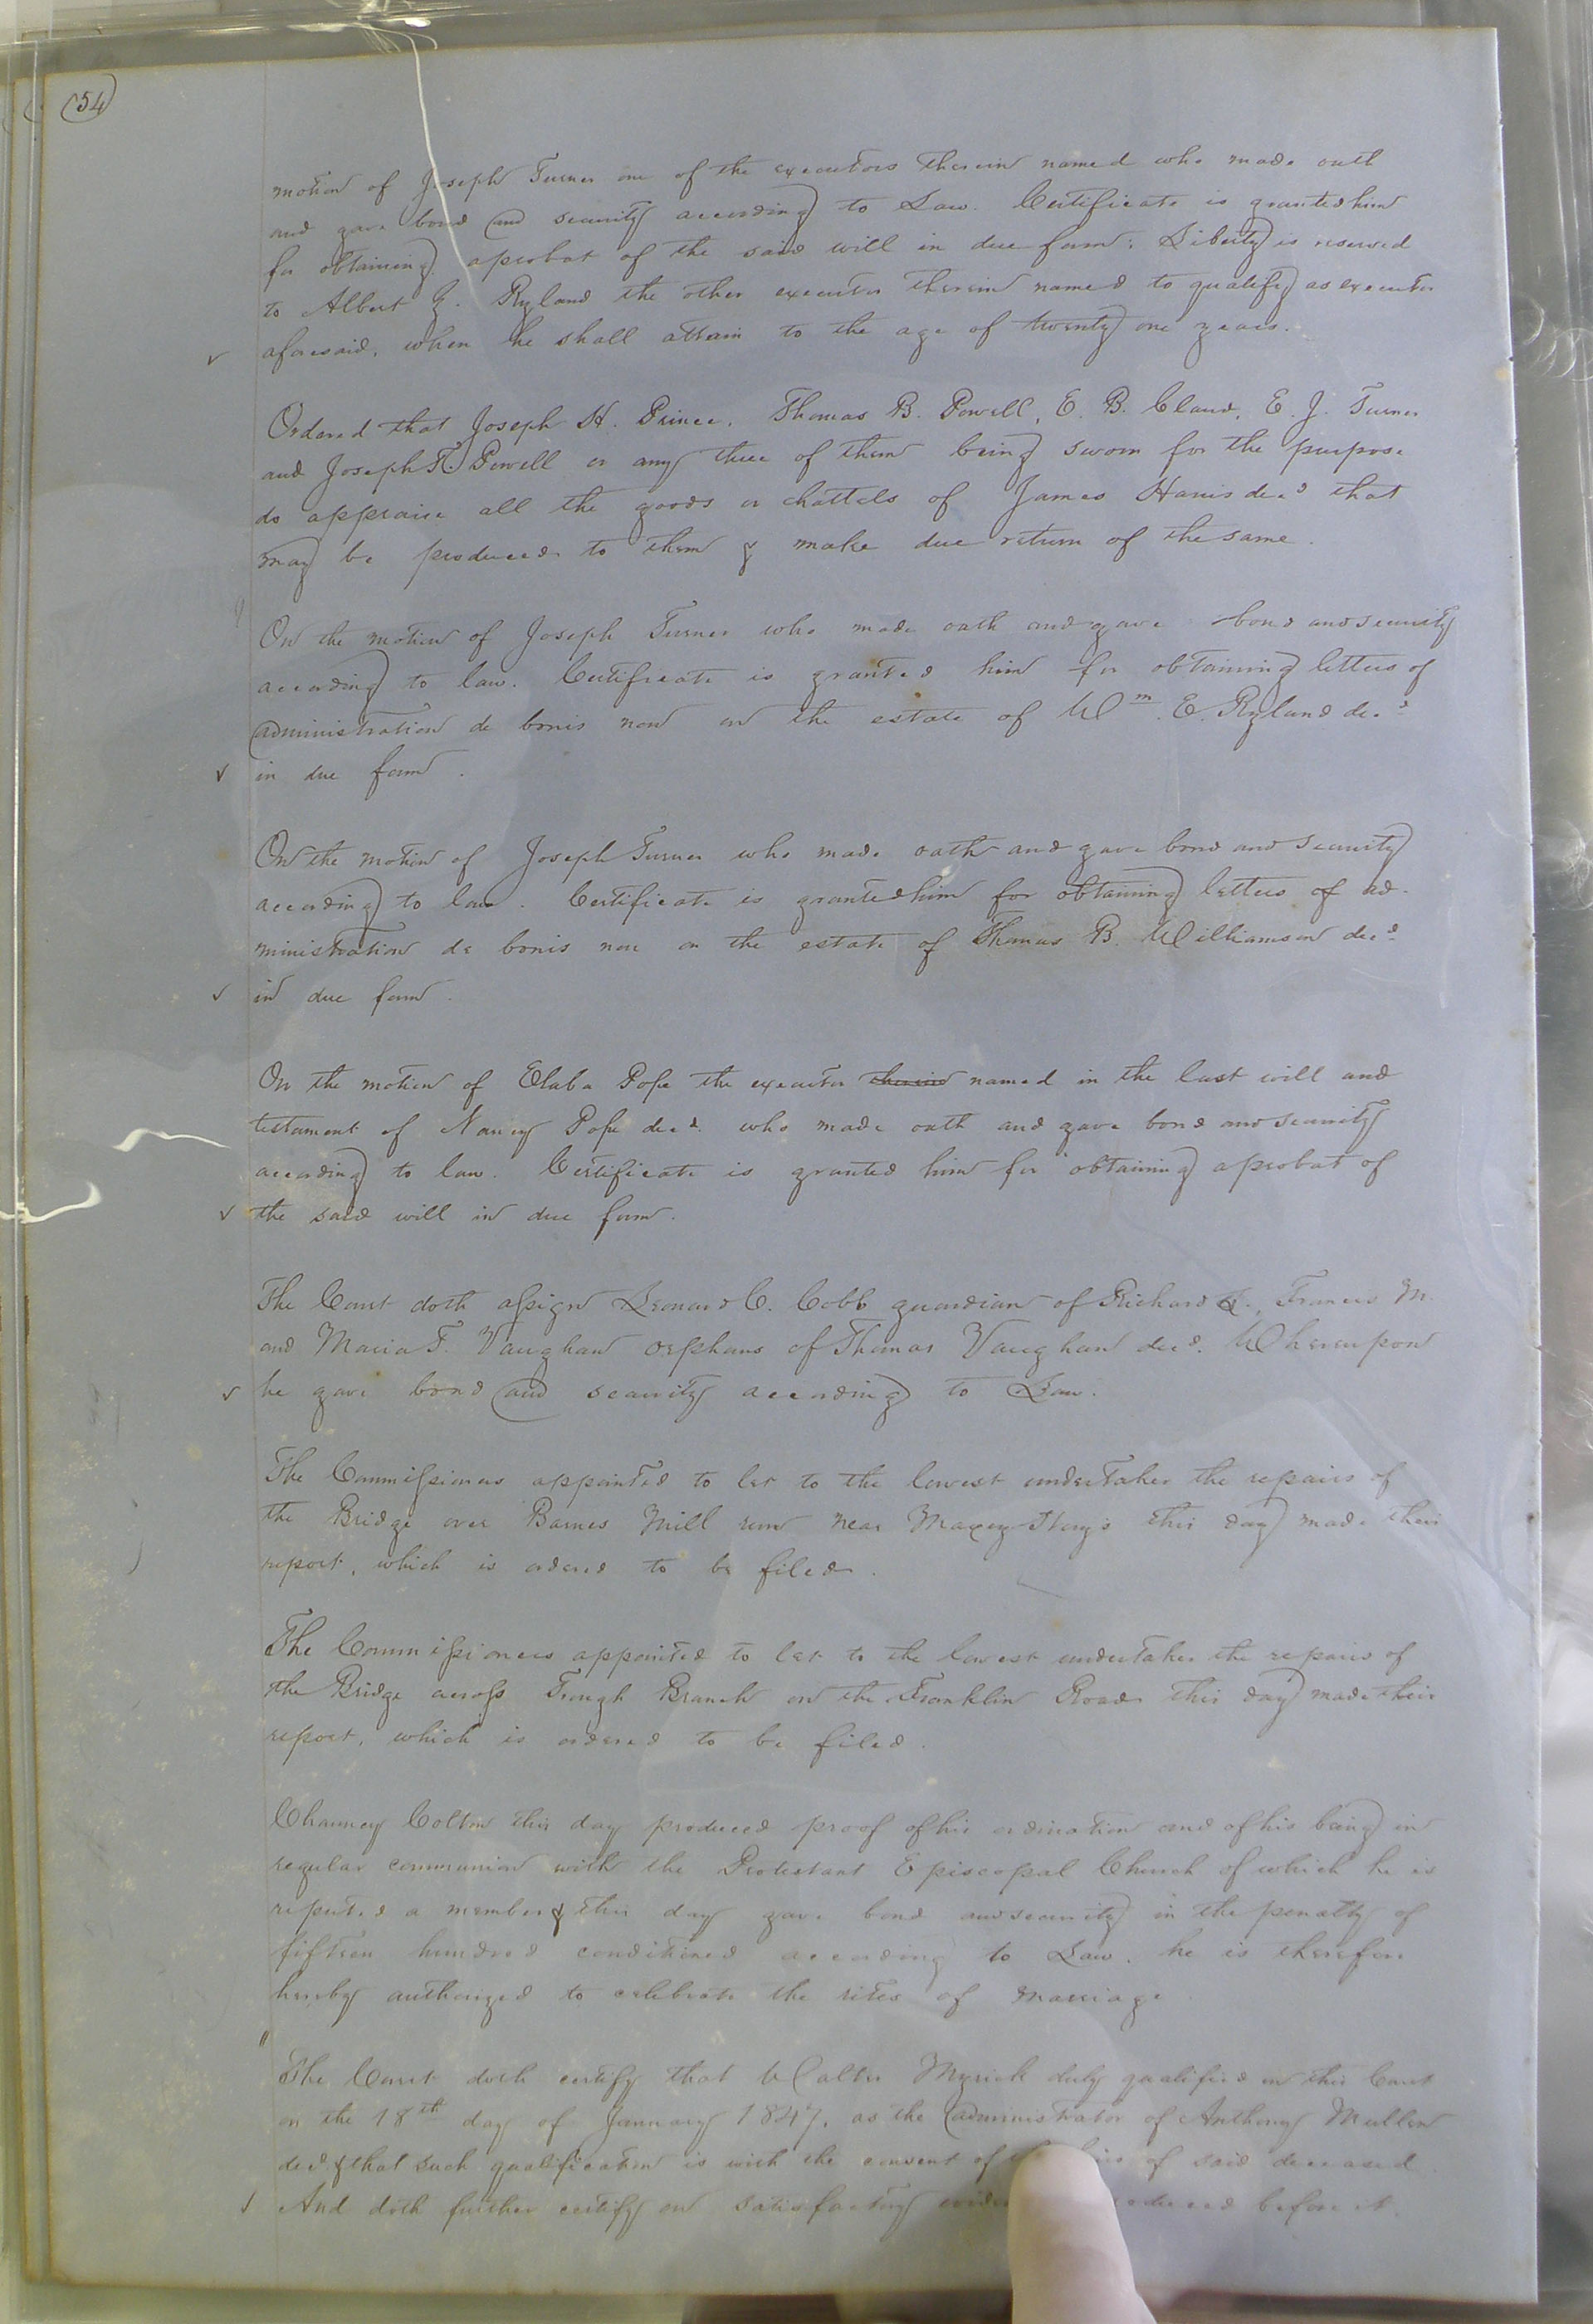 (54)
motion of Joseph Turner one of the executors therein named who made oath
and gave bond and security according to Law. Certificate is granted him
for obtaining a probat of the said will in due form: Liberty is reserved
to Albert G. Ryland the other executor therein named to qualify as executor
aforesaid, when he shall attain to the age of twenty one years.
Ordered that Joseph H. Prince, Thomas B. Powell, E. B. Claud, E. J. Turner
and Joseph T. Powell or any three of them being sworn for the purpose
do appraise all the goods or chattels of James Harris decd that
may be produced to them & make due return of the same.
On the motion of Joseph Turner who made oath and gave bond and security
according to law. Certificate is granted him for obtaining letters of
administration de bonis non on the estate of Wm. E. Ryland decd
in due form.
On the motion of Joseph Turner who made oath and gave bond and security
according to law. Certificate is granted him for obtaining letters of ad-
ministration de bonis non on the estate of Thomas B. Williamson decd
in due form.
On the motion of Elaba Pope the executor therein named in the last will and
testament of Nancy Pope decd. who made oath and gave bond and security
according to law. Certificate is granted him for obtaining a probat of
the said will in due form.
The Court doth assign Leonard C. Cobb guardian of Richard L., Frances M.
and Maria F. Vaughan orphans of Thomas Vaughan decd. Whereupon
he gave bond and security according to Law.
The Commissioners appointed to let to the lowest undertaker the repairs of
the Bridge over Barnes Mill run near Maxey Story's this day made their
report, which is ordered to be filed.
The Commissioners appointed to let to the lowest undertaker the repairs of
the Bridge across Trough Branch on the Franklin Road this day made their
report, which is ordered to be filed.
Chauncy Colton this day produced proof of his ordination and of his being in
regular communion with the Protestant Episcopal Church of which he is
reputed a member & this day gave bond and security in the penalty of
fifteen hundred conditioned according to Law. he is therefore
hereby authorized to celebrate the rites of marriage
The Court doth certify that Walter Myrick duly qualified in this Court
on the 18th day of January 1847, as the administrator of Anthony Mullen
decd & that such qualification is with the consent of of said deceased.
And doth further certify on satisfactory before it.